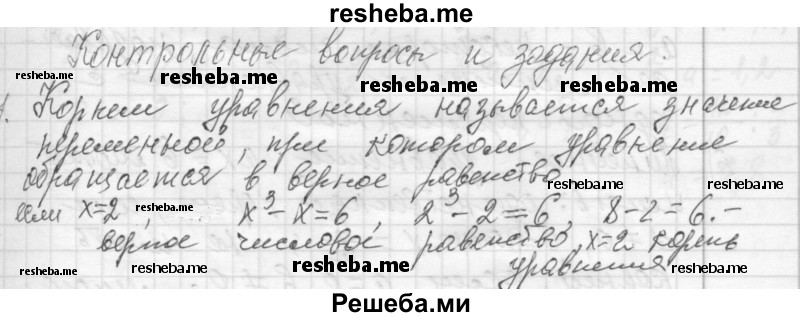 resheba.me
Контрольные вопросы и задания.
resheba.me resheba.me resheba.me resheba.me
1. Корнем уравнения называется значение
переменной, при котором уравнение
обращается в верное равенство
resheba.me resheba.me
если x=2, x³-x=6, 2³-2=6, 8-2=6.-
resheba.me
верное числовое равенство, x=2 корень
resheba.me resheba.me resheba.me resheba.me
уравнения
Решеба.ми